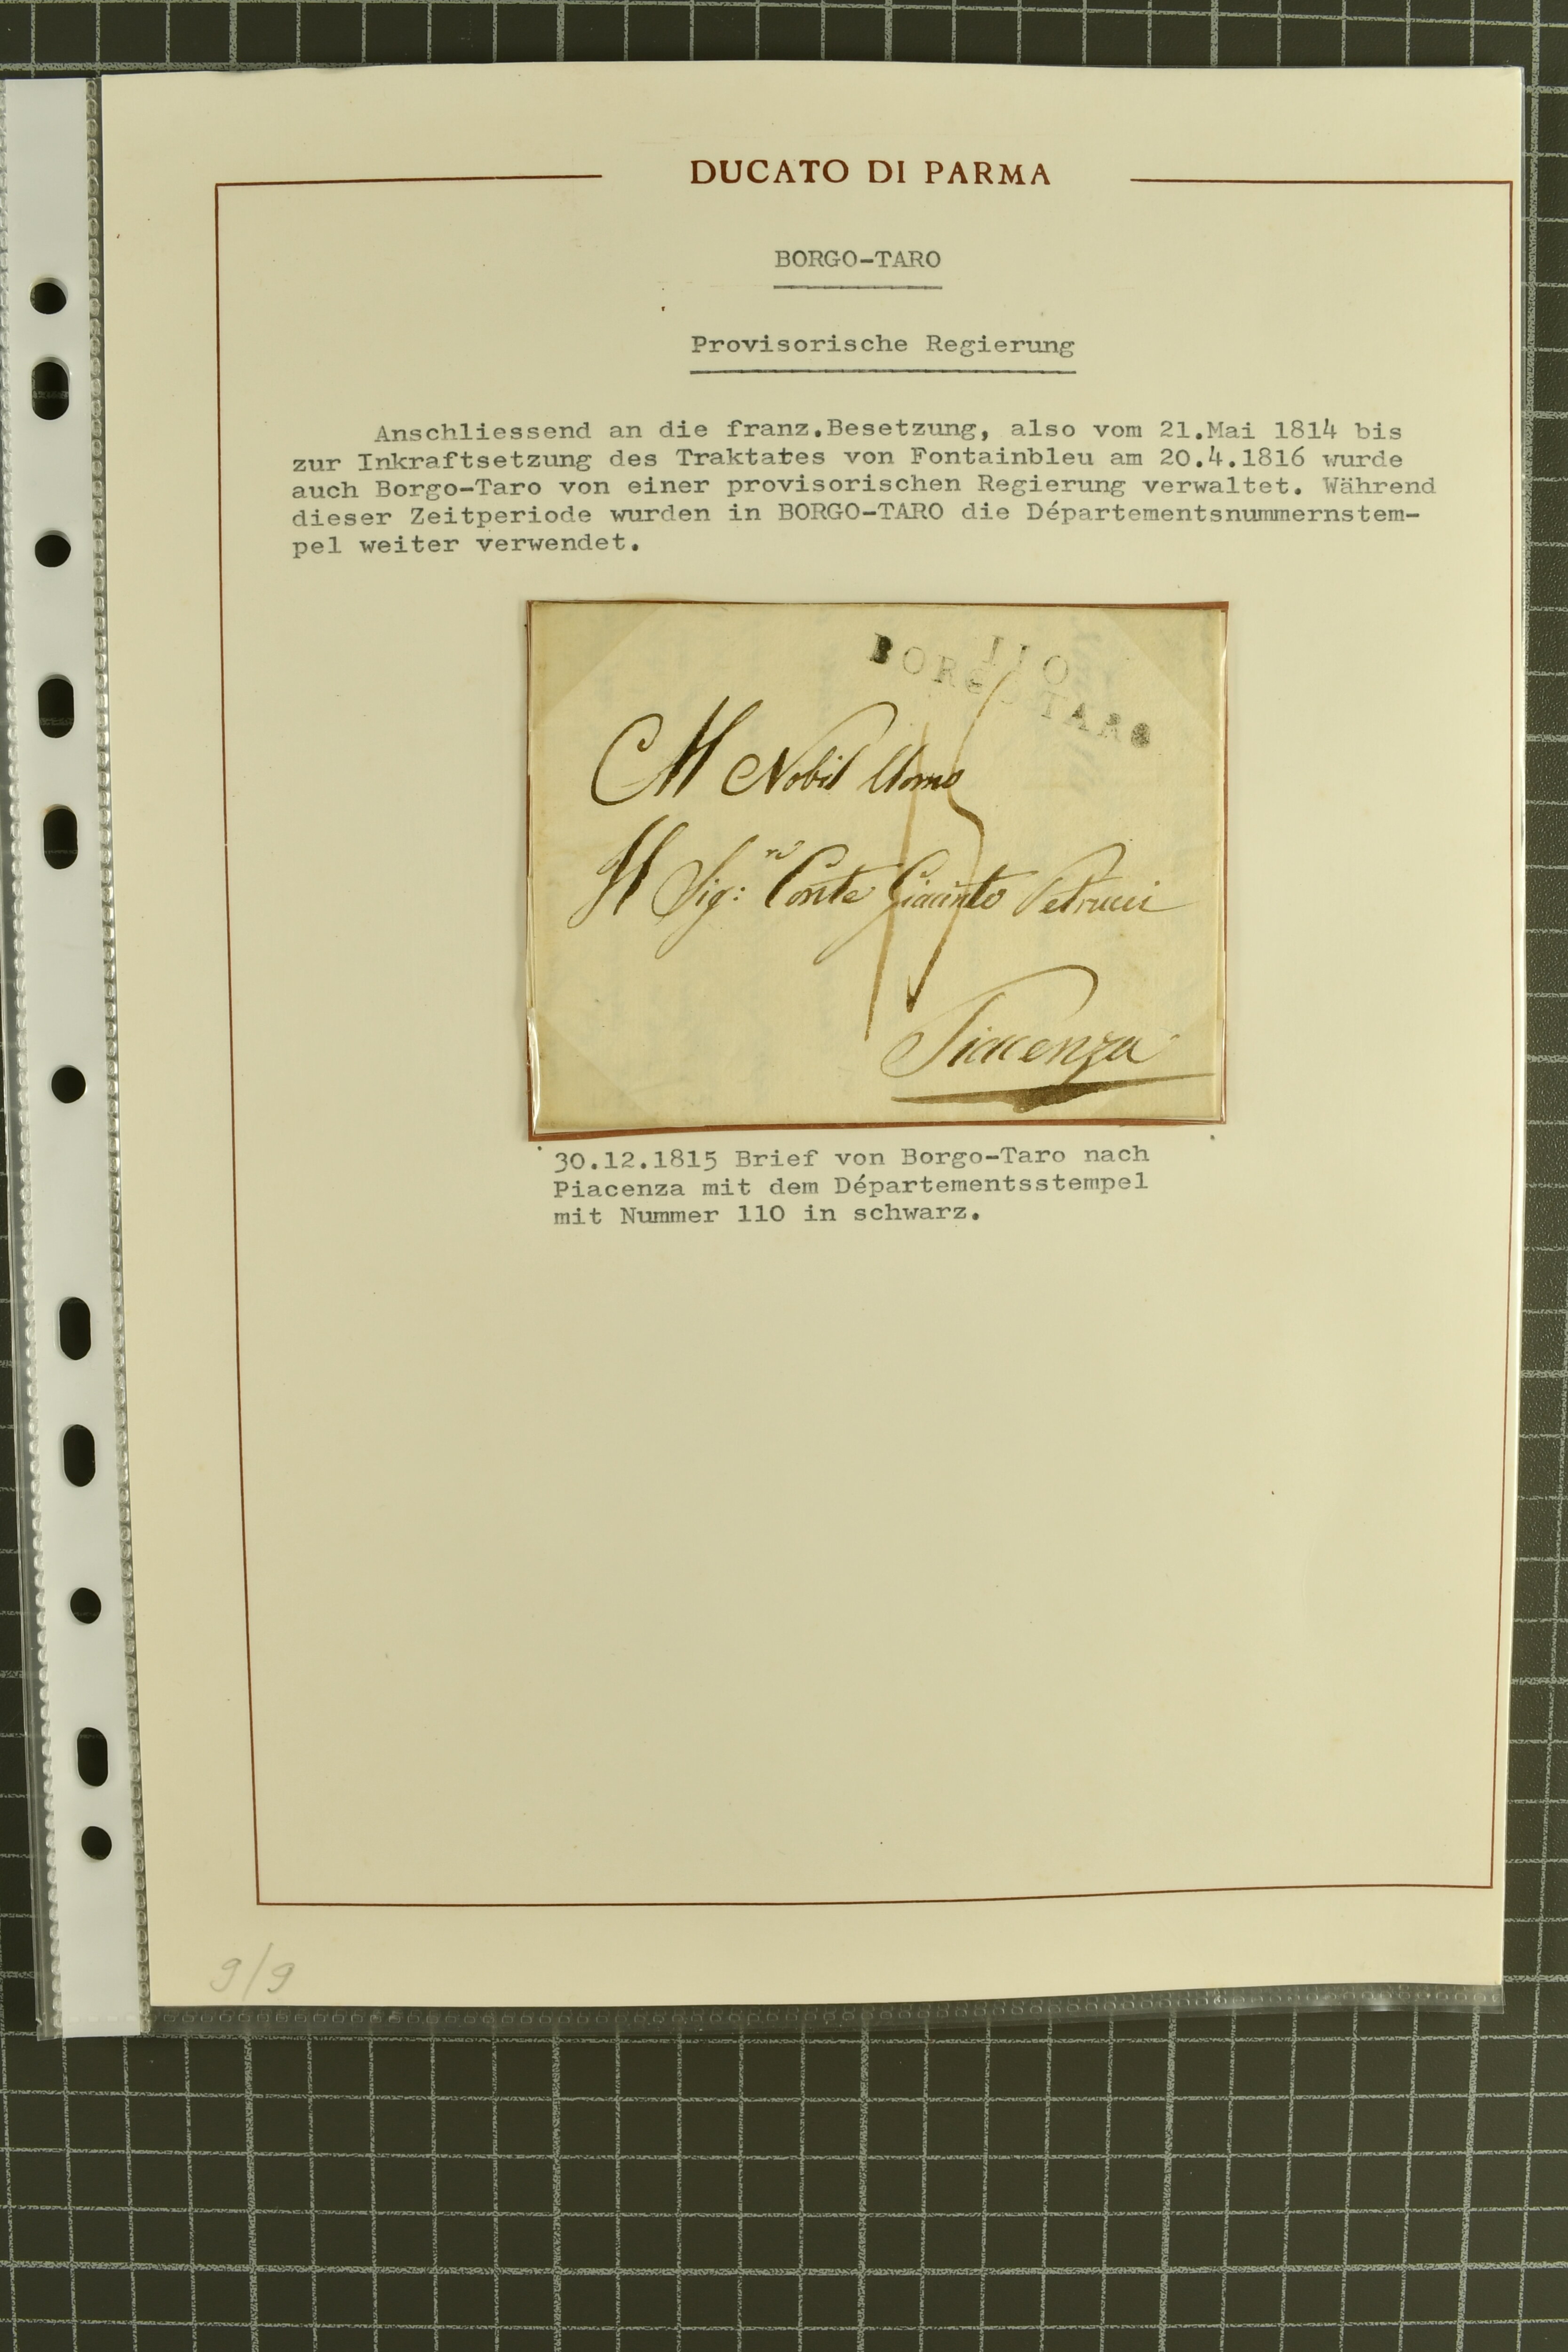 DUCATO DI PARMA
BORGO-TARO
Provisorische Regierung
Anschliessend an die franz.Besetzung, also vom 21.Mai 1814 bis
zur Inkraftsetzung des Traktates von Fontainbleu am 20.4.1816 wurde
auch Borgo-Taro von einer provisorischen Regierung verwaltet. Während
dieser Zeitperiode wurden in BORGO-TARO die Départementsnummernstem-
pel weiter verwendet.
110
BORGO TARO
Al Nobil Uomo
Il Sig:re Conte Giacinto Petrucci
Piacenza
30.12.1815 Brief von Borgo-Taro nach
Piacenza mit dem Départementsstempel
mit Nummer 110 in schwarz.
9/9